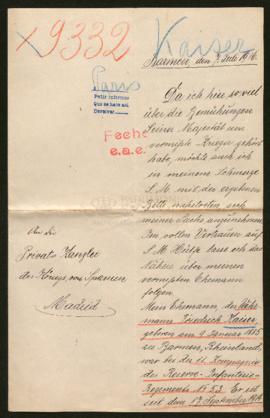 9332
Kaiser
Barmen, den 7. Juli 1916.
Paris
Pedir informes
Que se hace así.
Devolver
Fecho
e.a.e.
Da ich hier so viel
über die Bemühungen
Seiner Majestät um
vermißte Krieger gehört
habe, möchte auch ich
in meinem
S. M. mit der ergebenen
Bitte
meiner Sache anzunehmen.
Im vollen Vertrauen auf
S. M. Hülfe lasse ich das
Nähere über meinen
vermißten Ehemann
folgen.
An die
Privat-Kanzlei
des Königs von Spanien
Madrid
Mein Ehemann, der Wehr-
mann Friedrich Kaiser,
geboren am 9. Januar 1885
zu Barmen, Rheinland,
war bei der 11. Kompagnie
des Reserve-Infanterie-
Regiments No. 53. Er ist
seit dem 17. September 1914